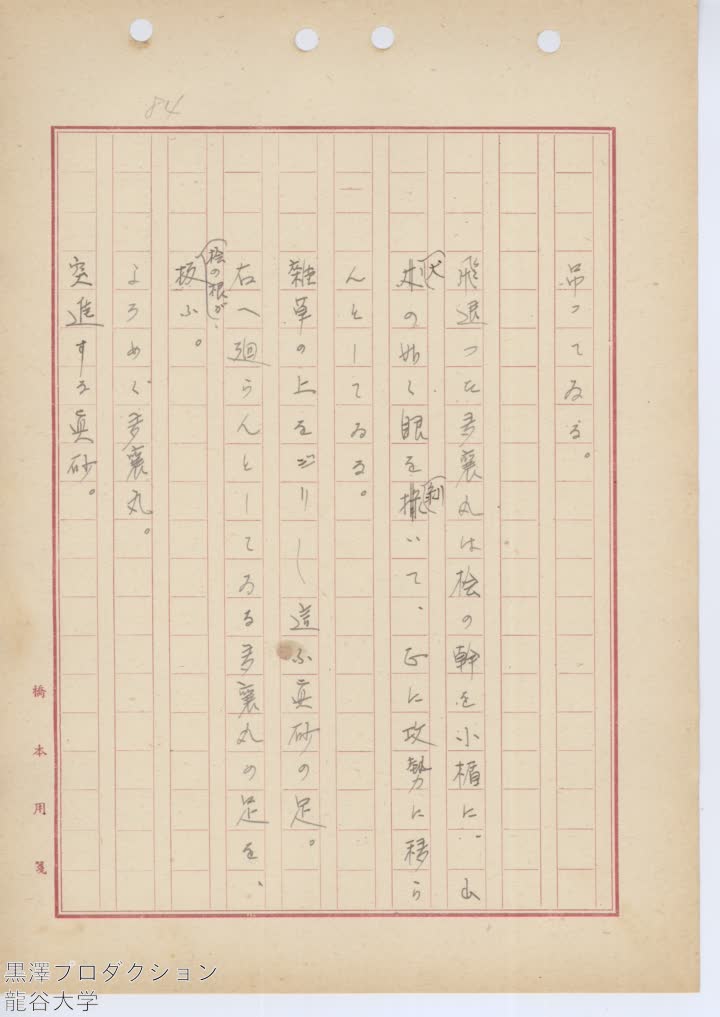 84
吊ってゐる。
飛退つた多襄丸は桧の幹を小楯に、山
犬の如く眼を剝いて、正に攻勢に移ら
んとしてゐる。
雑草の上をジリ〱這ふ眞砂の足。
右へ廻らんとしてゐる多襄丸の足を、
桧の根が、
ふ。
よろめく多襄丸。
突進する眞砂。
橋本用箋
黒澤プロダクション
龍谷大学